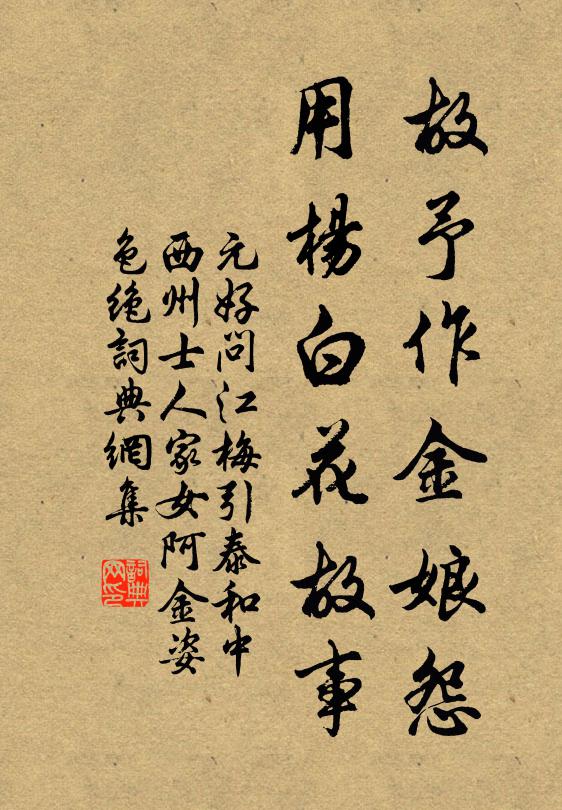 故予作金娘怨
用楊白花故事
元好問江梅引泰和中
西州士人家女阿金姿
色绝詞典網集
詞典
网印